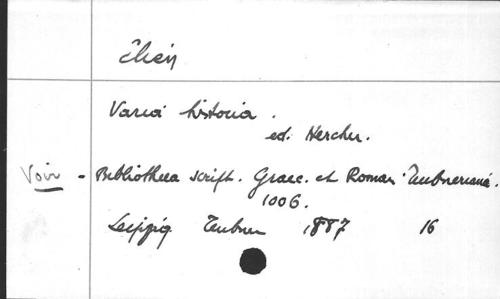 Élien
Varia historia.
ed. Hercher.
Voir - Bibliotheca script. Graec. et Roman. Teubneriana.
1006.
Leipzig Teubner 1887 16